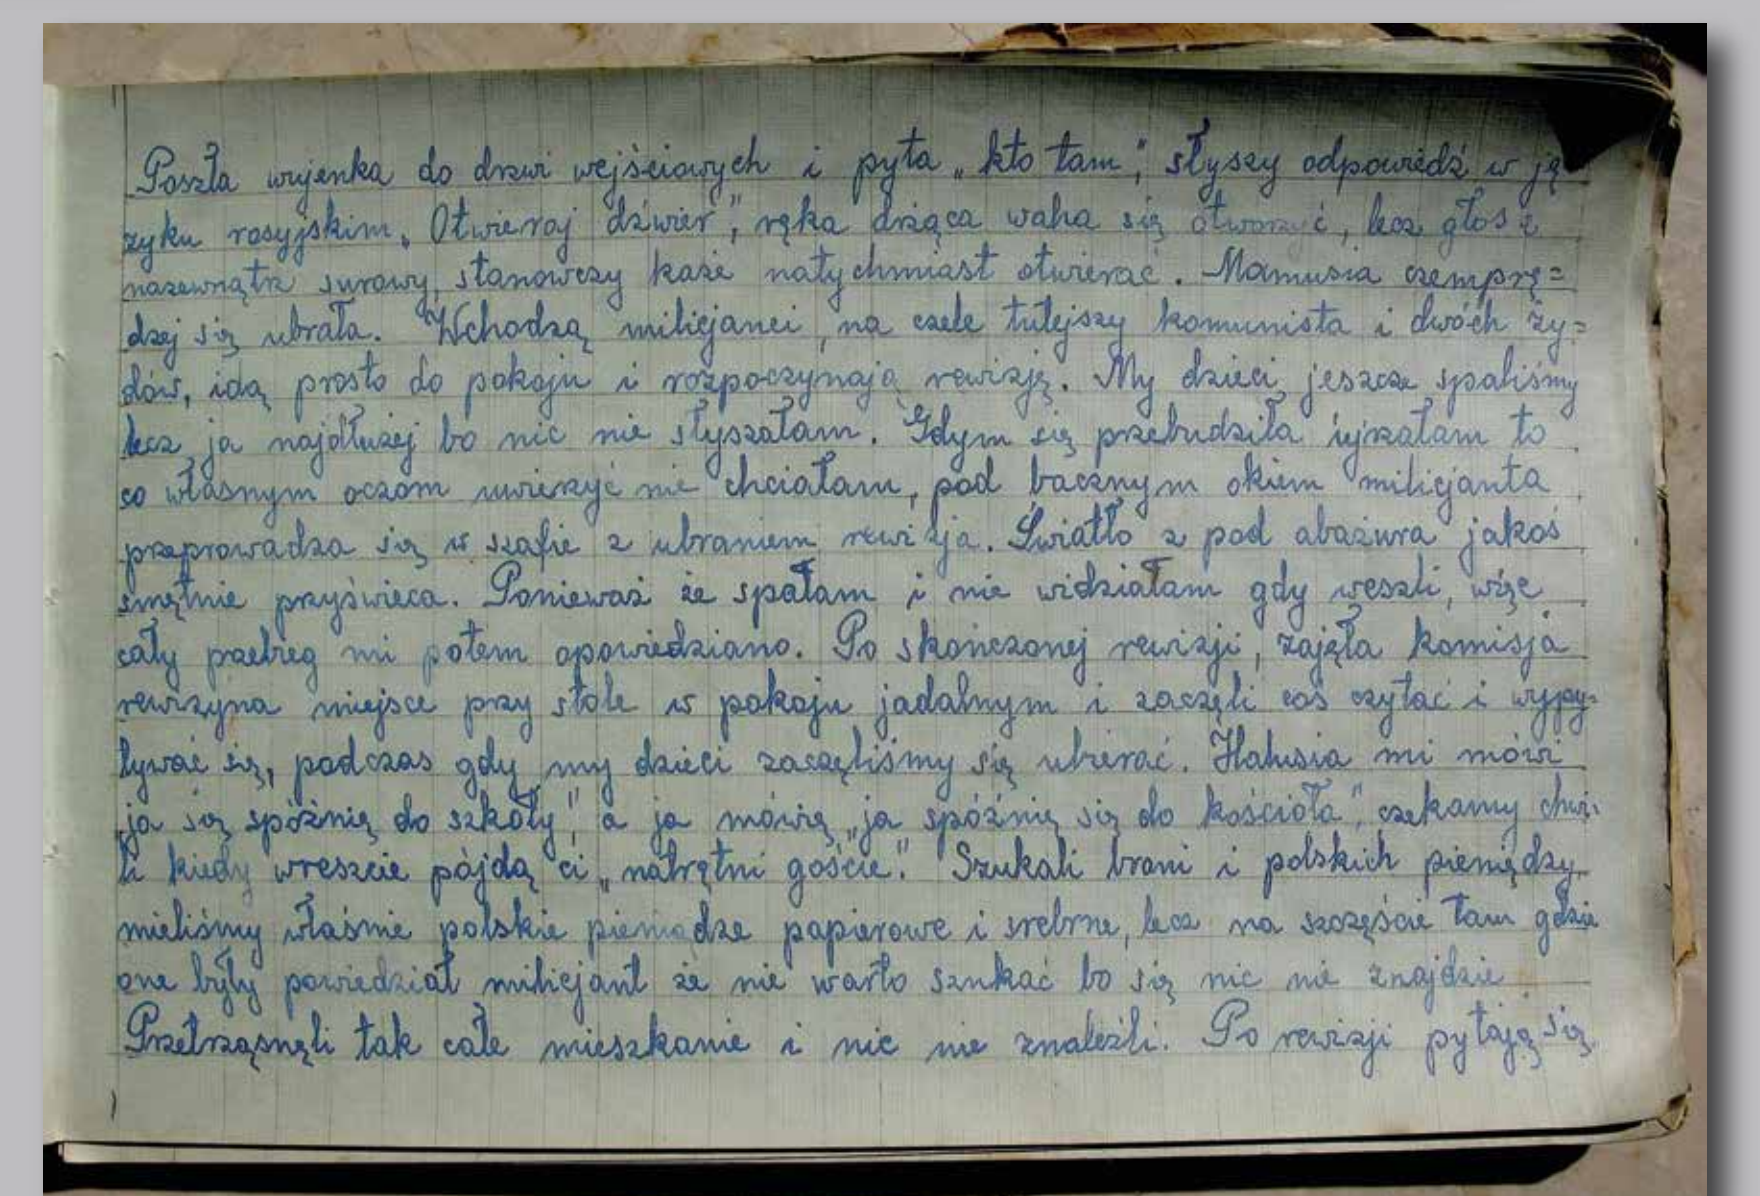 Poszła wujenka do drzwi wejściowych i pyta „kto tam", słyszy odpowiedź w ję-
zyku rosyjskim „Otwieraj dźwier", ręka drżąca waha się otworzyć, lecz głos z
nazewnątrz surowy, stanowczy każe natychmiast otwierać. Mamusia czemprę=
dzej się ubrała. Wchodzą milicjanci, na czele tutejszy komunista i dwóch ży=
dów, idą prosto do pokoju i rozpoczynają rewizję. My dzieci jeszcze spaliśmy
lecz ja najdłużej bo nic nie słyszałam. Gdym się przebudziła ujrzałam to
co własnym oczom uwierzyć nie chciałam, pod bacznym okiem milicjanta
przeprowadza się w szafie z ubraniem rewizja. Światło z pod abażura jakoś
smętnie przyświeca. Ponieważ że spałam i nie widziałam gdy weszli, więc
cały przebieg mi potem opowiedziano. Po skończonej rewizji, zajęła komisja
rewizyjna miejsce przy stole w pokoju jadalnym i zaczęli coś czytać i wypy-
tywać się, podczas gdy my dzieci zaczęliśmy się ubierać. Halusia mi mówi
„ja się spóźnię do szkoły" a ja mówię „ja spóźnię się do kościoła", czekamy chwi-
li kiedy wreszcie pójdą ci „natrętni goście". Szukali broni i polskich pieniędzy
mieliśmy właśnie polskie pieniądze papierowe i srebrne, lecz na szczęście tam gdzie
one były powiedział milicjant że nie warto szukać bo się nic nie znajdzie
Przetrząsnęli tak całe mieszkanie i nic nie znaleźli. Po rewizji pytają się